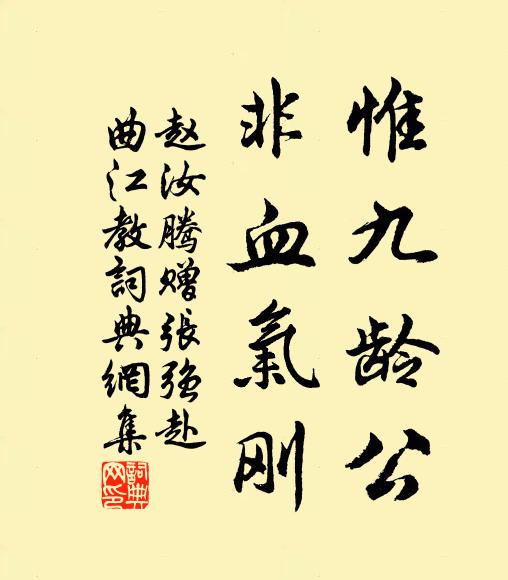 惟九龄公
非血氣刚
赵汝腾赠張强赴
曲江教詞典網集
詞典網印